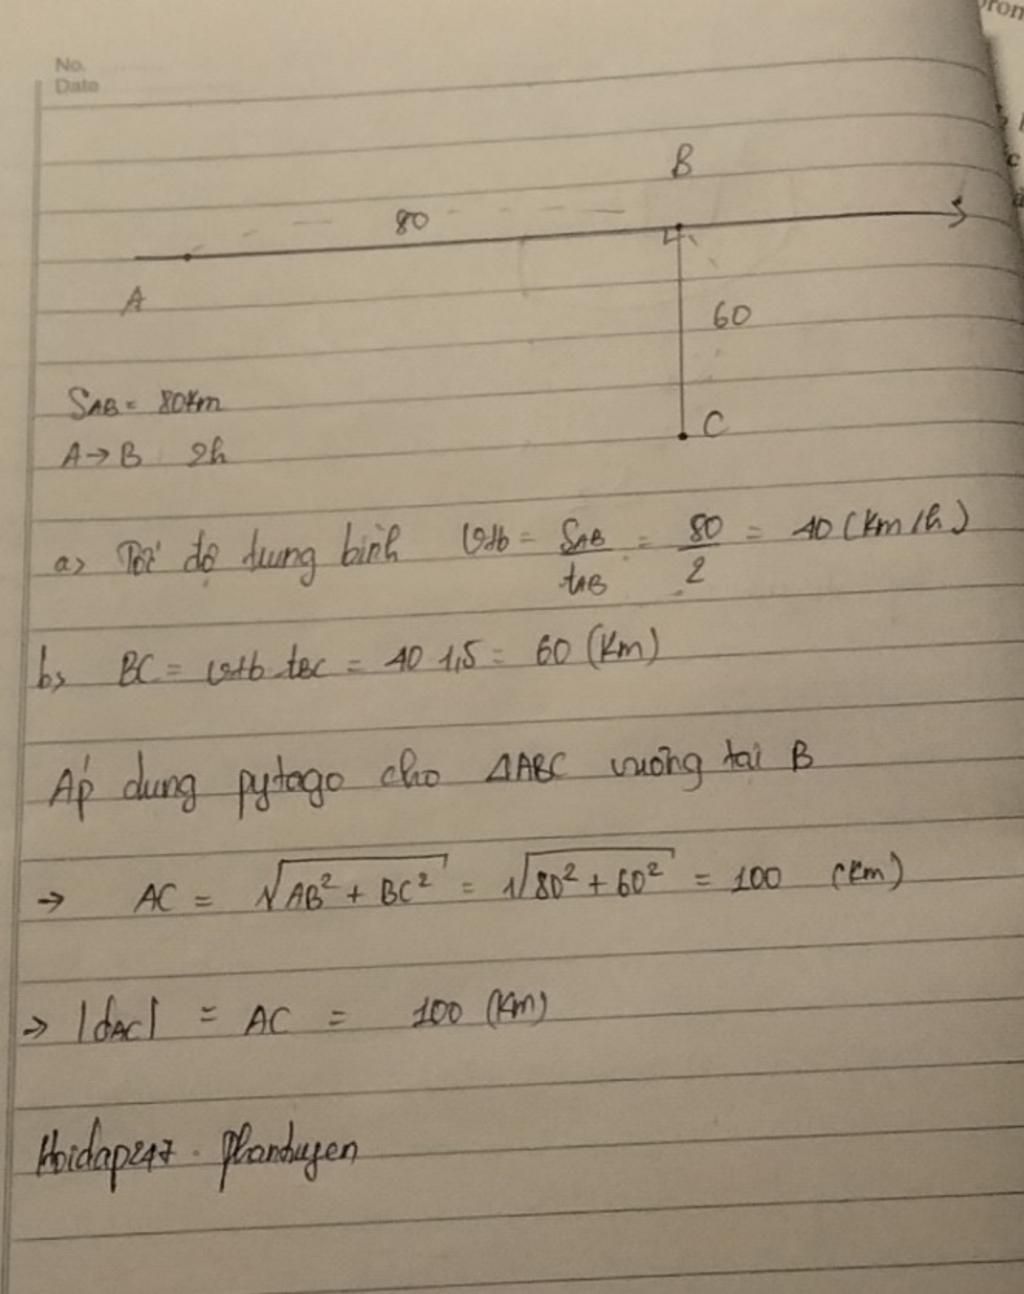 No.
Date
B
80
S
A
60
C
SAB = 80km
A → B 2h
a) Tốc độ trung bình vtb = SAB / tAB = 80 / 2 = 40 (km/h)
b) BC = vtb . tBC = 40 1,5 = 60 (km)
Áp dụng pytago cho ΔABC vuông tại B
→ AC = √AB² + BC² = √80² + 60² = 100 (km)
→ |dAC| = AC = 100 (km)
Hoidap247 . Phantuyen